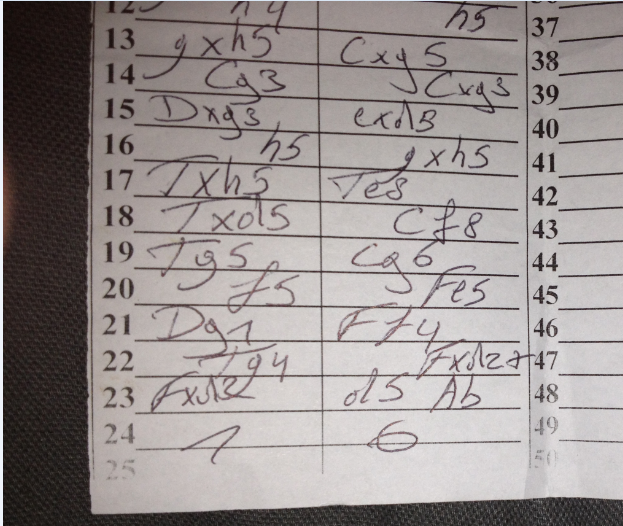 12 h4 h5 37
13 gxh5 Cxg5 38
14 Cg3 Cxg3 39
15 Dxg3 exd3 40
16 h5 gxh5 41
17 Txh5 Te8 42
18 Txd5 Cf8 43
19 Tg5 Cg6 44
20 f5 Fe5 45
21 Dg1 Ff4 46
22 Tg4 Fxd2+ 47
23 Fxd2 d5 Ab 48
24 1 6 49
25 50